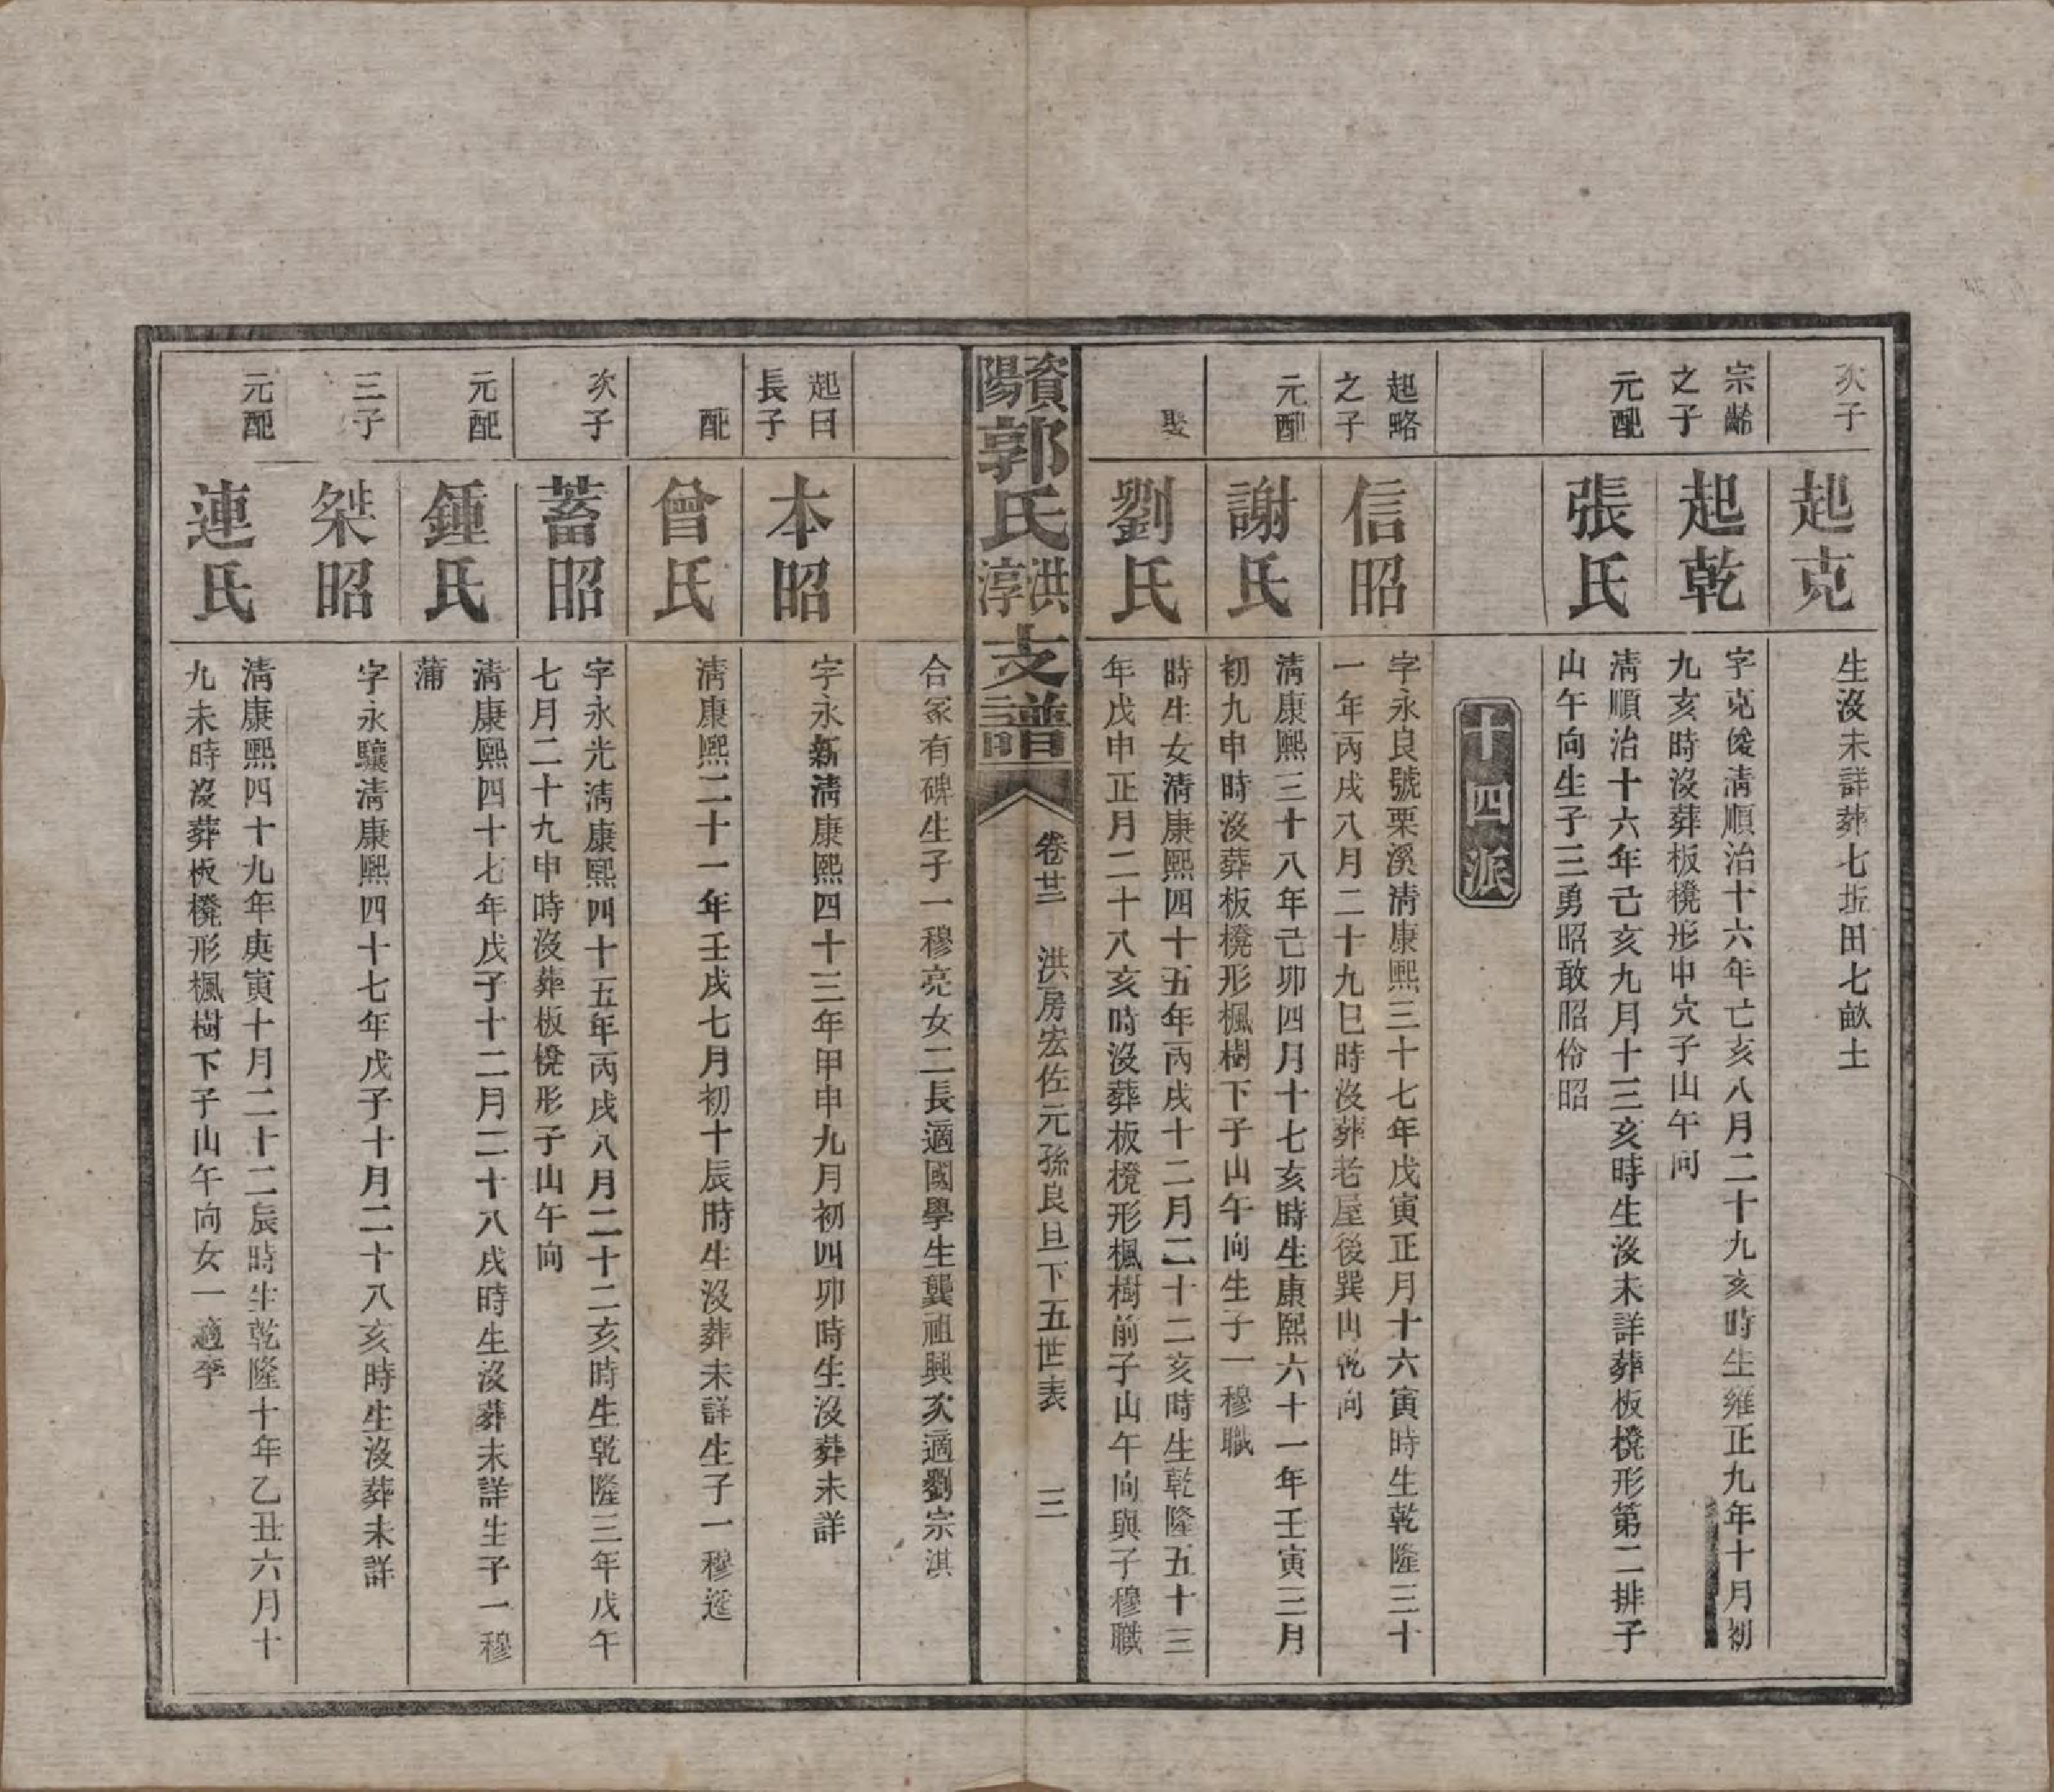 次子
起克
生沒未詳葬七坵田七畝土
宗齡
之子
起乾
字克俊清順治十六年亡亥八月二十九亥時生雍正九年十月初
九亥時沒葬板櫈形中穴子山午向
元配
張氏
清順治十六年己亥九月十三亥時生沒未詳葬板櫈形第二排子
山午向生子三勇昭敢昭伶昭
十四派
起略
之子
信昭
字永良號栗溪清康熙三十七年戊寅正月十六寅時生乾隆三十
一年丙戌八月二十九巳時沒葬老屋後巽山乾向
元配
謝氏
清康熙三十八年己卯四月十七亥時生康熙六十一年壬寅三月
初九申時沒葬板櫈形楓樹下子山午向生子一穆職
娶
劉氏
時生女清康熙四十五年丙戌十二月二十二亥時生乾隆五十三
年戊申正月二十八亥時沒葬板櫈形楓樹前子山午向與子穆職
資陽郭氏洪淳支譜
卷廿二 洪房宏佐元孫良旦下五世表 三
合冢有碑生子一穆亮女二長適國學生龔祖興次適劉宗淇
起日
長子
本昭
字永新清康熙四十三年甲申九月初四卯時生沒葬未詳
配
曾氏
清康熙二十一年壬戌七月初十辰時生沒葬未詳生子一穆
次子
蓄昭
字永光清康熙四十五年丙戌八月二十二亥時生乾隆三年戊午
七月二十九申時沒葬板櫈形子山午向
元配
鍾氏
清康熙四十七年戊子十二月二十八戌時生沒葬未詳生子一穆
蒲
三子
桀昭
字永驤清康熙四十七年戊子十月二十八亥時生沒葬未詳
元配
連氏
清康熙四十九年庚寅十月二十二辰時生乾隆十年乙丑六月十
九未時沒葬板櫈形楓樹下子山午向女一適李